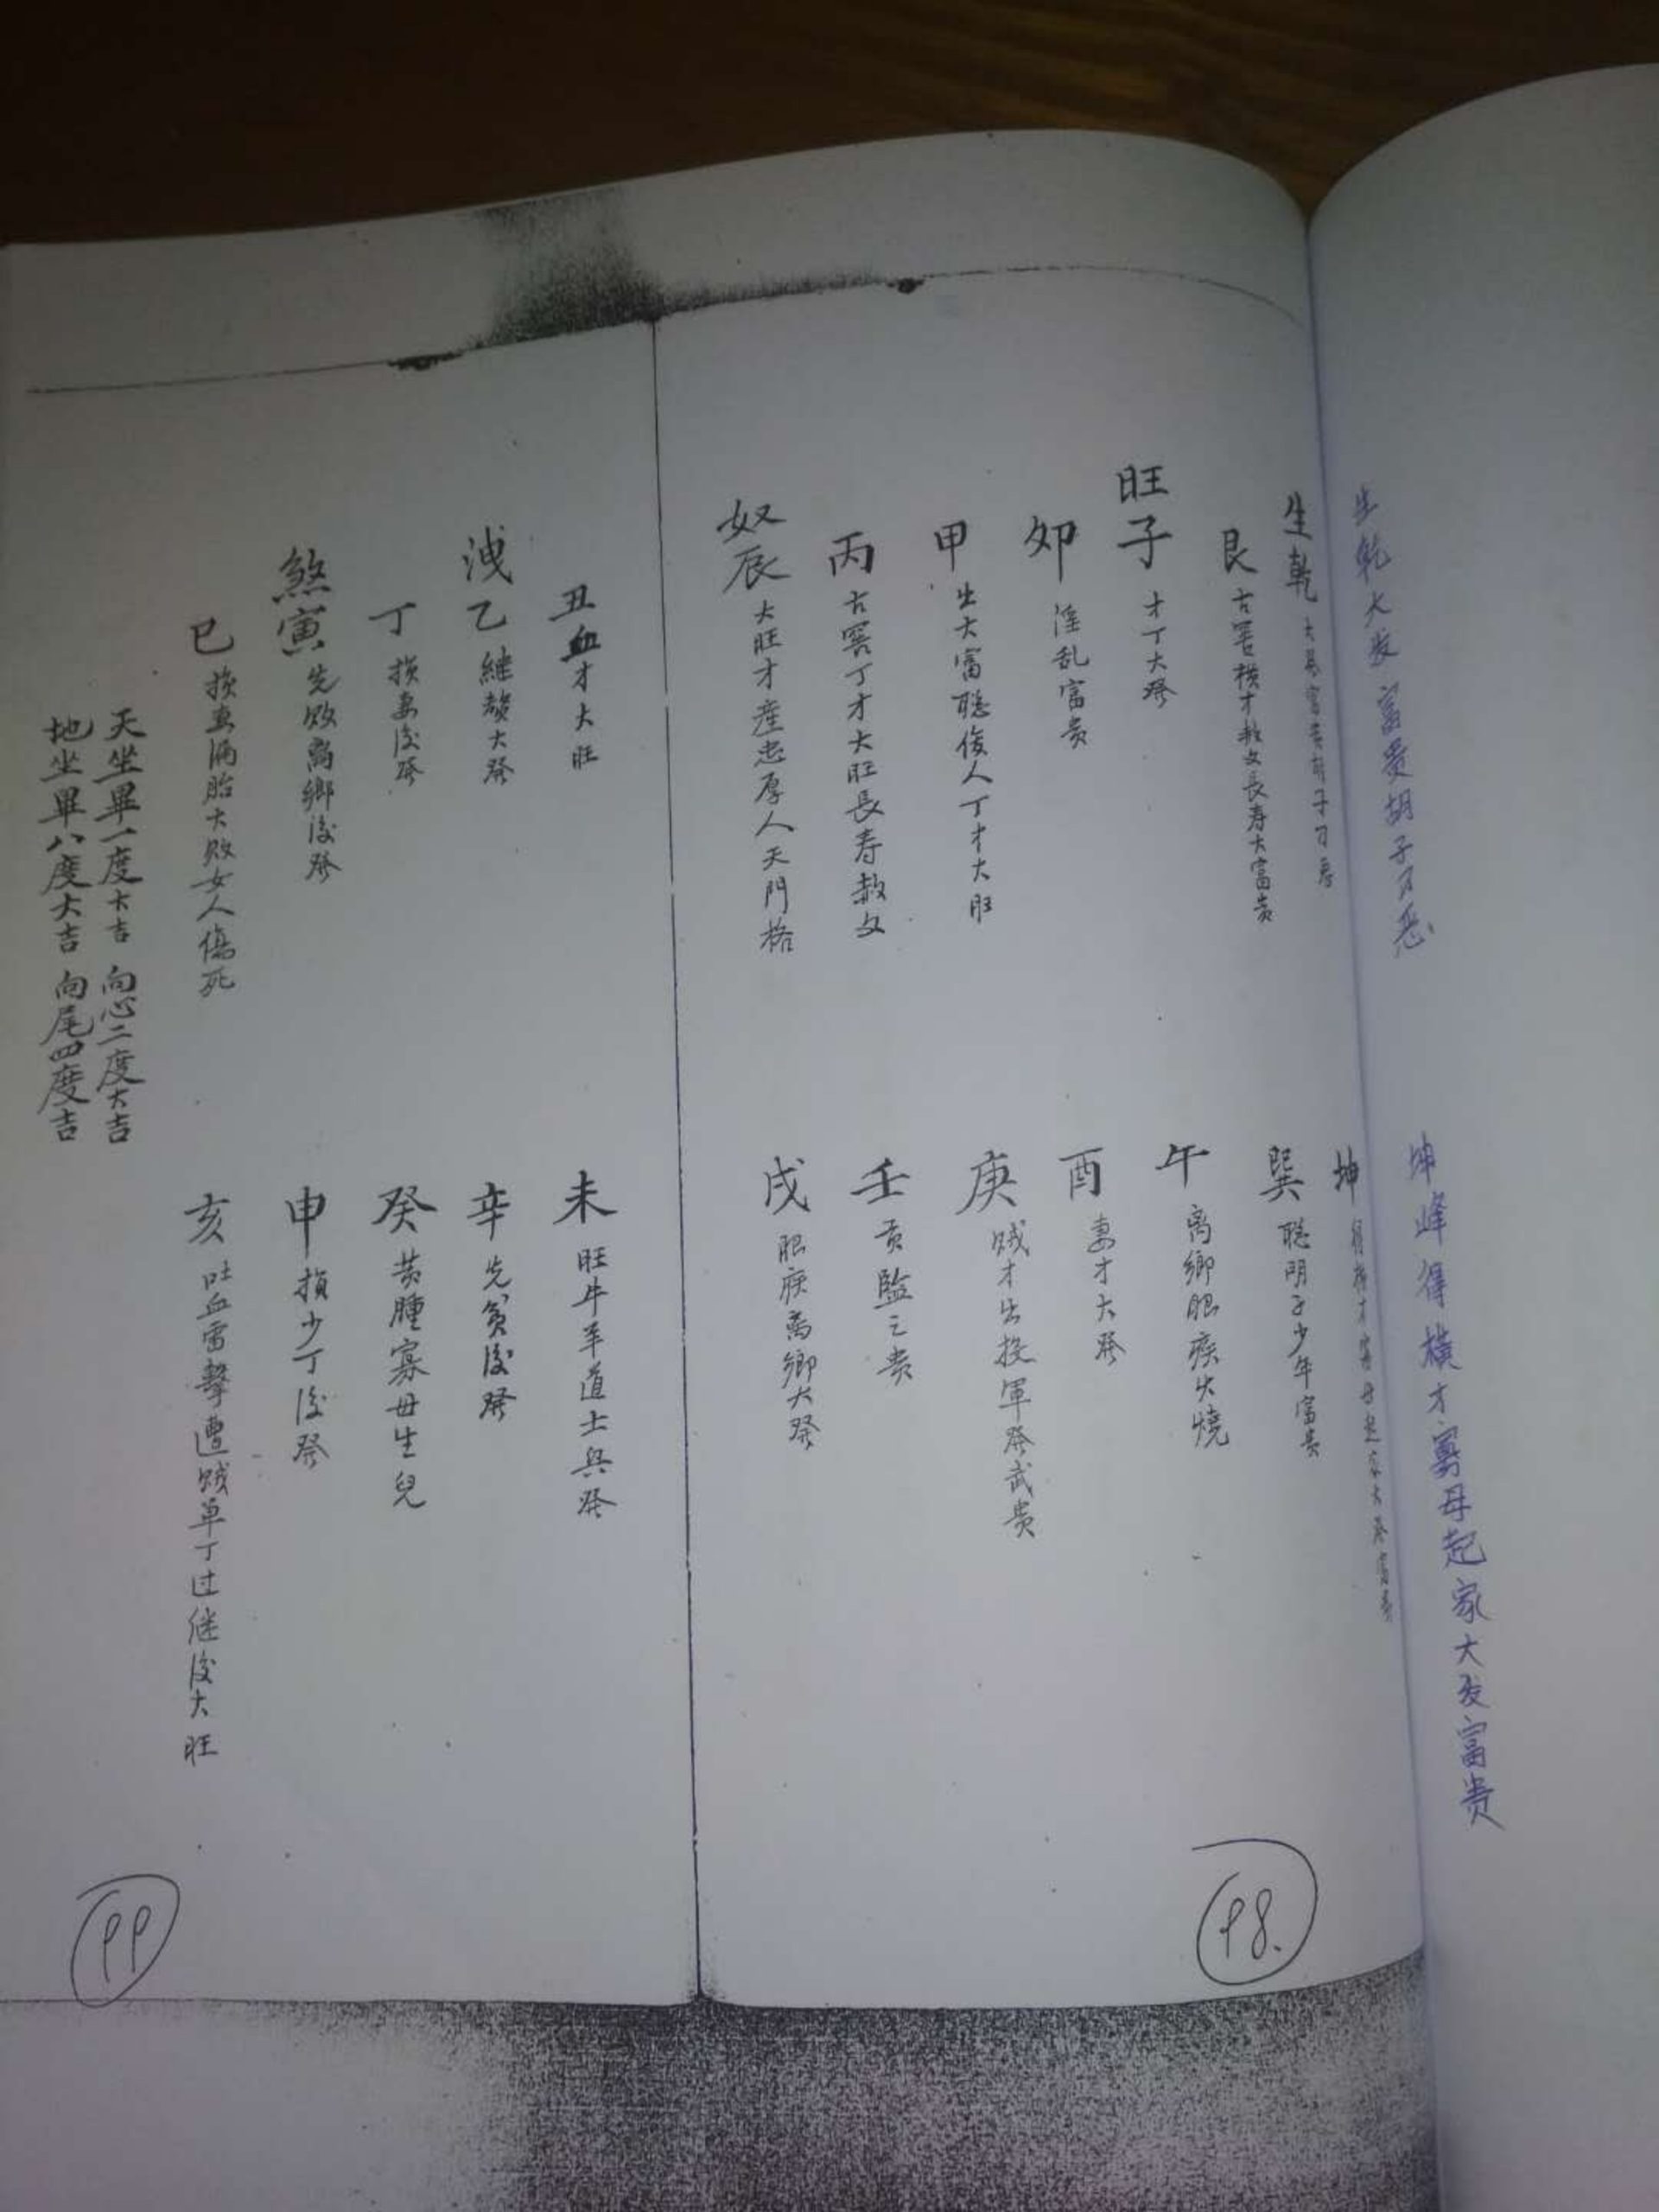 生乾大发富贵胡子刀恶
坤峰得橫才寡母起家大发富贵
生乾大發富貴胡子刀惡
坤得橫才寡母起家大發富貴
艮古窖橫才赦文長寿大富貴
巽聪明子少年富貴
旺子才丁大發
午离鄉眼疾火燒
卯淫乱富貴
酉妻才大發
甲出大富聪俊人丁才大旺
庚贼才出投軍發武貴
丙古窖丁才大旺長寿赦文
壬貢監之貴
奴辰大旺才産忠厚人天門格
戌眼疾离鄉大發
98.
丑血才大旺
未旺牛羊道士兵發
洩乙繼贅大發
辛先貧後發
丁損妻後發
癸黄腫寡母生兒
煞寅先敗离鄉後發
申損少丁後發
巳損妻滴胎大敗女人傷死
亥吐血雷擊遭贼单丁过继後大旺
天坐畢一度大吉 向心二度大吉
地坐畢八度大吉 向尾四度吉
99